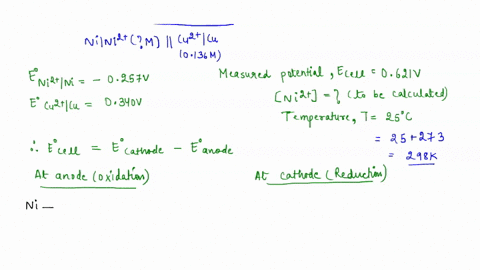 Ni|Ni²⁺(?M) || Cu²⁺|Cu
(0.136M)
E°Ni²⁺/Ni = - 0.257V
E°Cu²⁺/Cu = 0.340V
Measured potential, Ecell = 0.621V
[Ni²⁺] = ? (to be calculated)
Temperature, T = 25°C
= 25+273
= 298K
∴ E°cell = E°cathode - E°anode
At anode (oxidation)
At cathode (Reduction)
Ni —